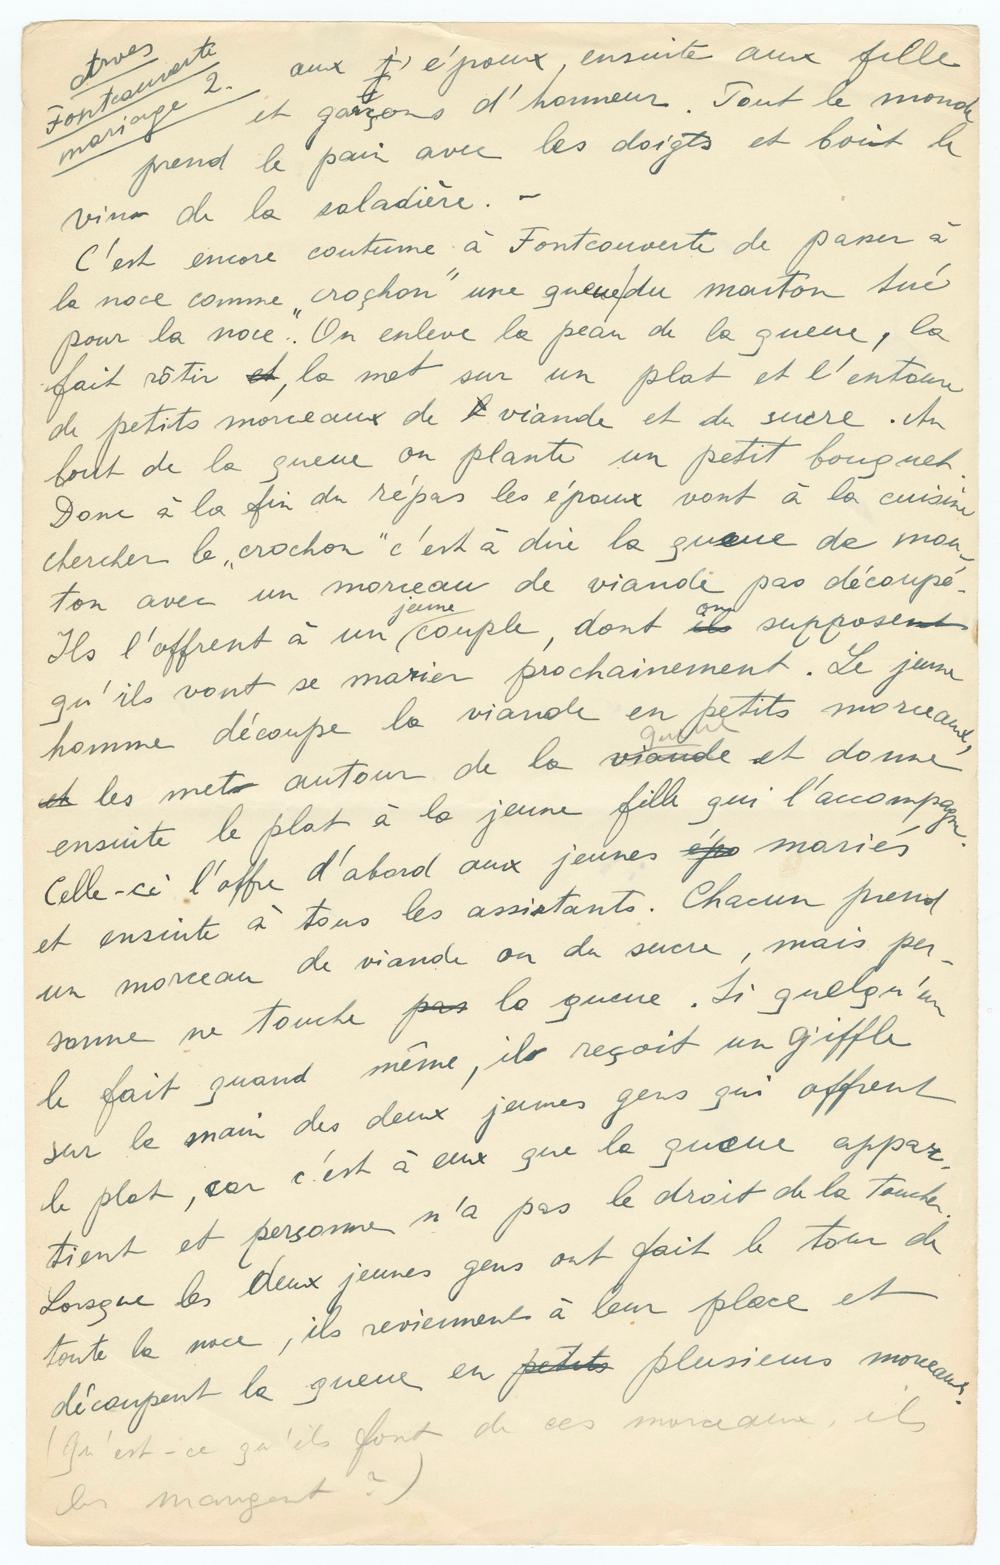 Arves
Fontcouverte
mariage 2.
aux époux, ensuite aux fille
et garçons d'honneur. Tout le monde
prend le pain avec les doigts et boit le
vin de la saladière. -
C'est encore coutume à Fontcouverte de passer à
la noce comme „croçhon" une queue/du mouton tué
pour la noce". On enleve la peau de la queue, la
fait rôtir et, la met sur un plat et l'entoure
de petits morceaux de viande et du sucre. Au
bout de la queue on plante un petit bouquet.
Donc à la fin du répas les époux vont à la cuisine
chercher le „crochon" c'est à dire la queue de mou-
ton avec un morceau de viande pas découpé.
Ils l'offrent à un jeune couple, dont ils on supposent
qu'ils vont se marier prochainement. Le jeune
homme découpe la viande en petits morceaux,
et les met autour de la viande queue et donne
ensuite le plat à la jeune fille qui l'accompagne.
Celle-ci l'offre d'abord aux jeunes épo mariés
et ensuite à tous les assistants. Chacun prend
un morceau de viande ou du sucre, mais per-
sonne ne touche pas la queue. Si quelqu'un
le fait quand même, il reçoit un giffle
sur la main des deux jeunes gens qui offrent
le plat, car c'est à eux que la queue appar-
tient et perçonne n'a pas le droit de la toucher.
Lorsque les deux jeunes gens ont fait le tour de
toute la noce, ils reviennent à leur place et
découpent la queue en petits plusieurs morceaux.
(Qu'est-ce qu'ils font de ces morceaux, ils
les mangent ?)